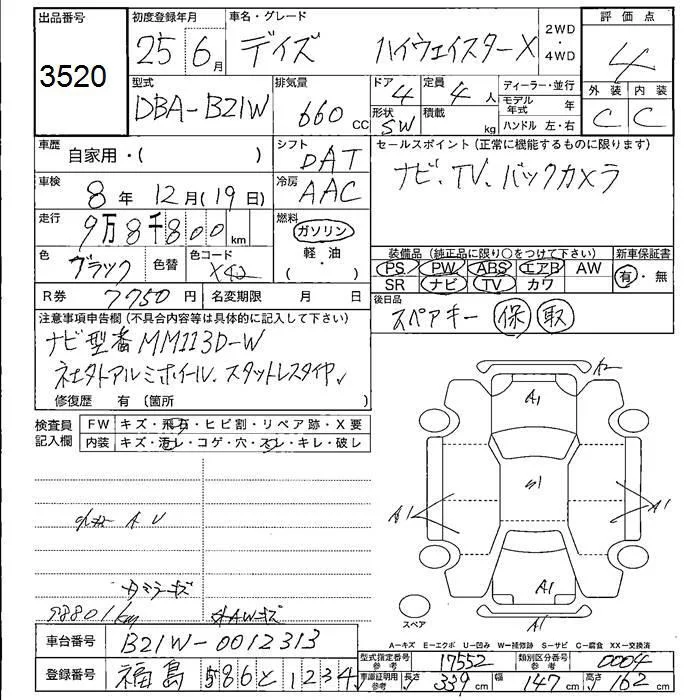 出品番号 初度登録年月 車名・グレード 評価点
3520 25 6月 デイズ ハイウェイスターX 2WD・4WD 4
型式 排気量 ドア 定員 ディーラー・並行 外装 内装
DBA-B21W 660cc 4 4人 モデル年式 年 C C
形状 積載 ハンドル 左・右
SW kg
車歴 シフト セールスポイント(正常に機能するものに限ります)
自家用・( ) DAT ナビ、TV、バックカメラ
車検 冷房
8年12月(19日) AAC
走行 燃料
9万8千800km ガソリン
軽・油
・( )
色 色替 色コード 装備品(純正品に限り○をつけて下さい) 新車保証書
ブラック X42 PS PW ABS エアB AW 有・無
SR ナビ TV カワ
R券 7750円 名変期限 月 日 後日品
スペアキー 保 取
注意事項申告欄(不具合内容等は具体的に記入して下さい)
ナビ型番MM113D-W
社外アルミホイール、スタットレスタイヤ
修復歴 有(箇所 )
検査員記入欄 FW キズ・飛石・ヒビ割・リペア跡・X要
内装 キズ・汚レ・コゲ・穴・スレ・キレ・破レ
A2
A1
S1
A1 A1
A1
A1
A U
ミラーキズ
98801km AWキズ
スペア
A-キズ E-エクボ U-凹み W-補修跡 S-サビ C-腐食 XX-交換済
車台番号 B21W-0012313
型式指定番号 参考 17552 類別区分番号 参考 0004
登録番号 福島586と1234
車庫証明用 参考 長さ 339cm 幅 147cm 高さ 162cm